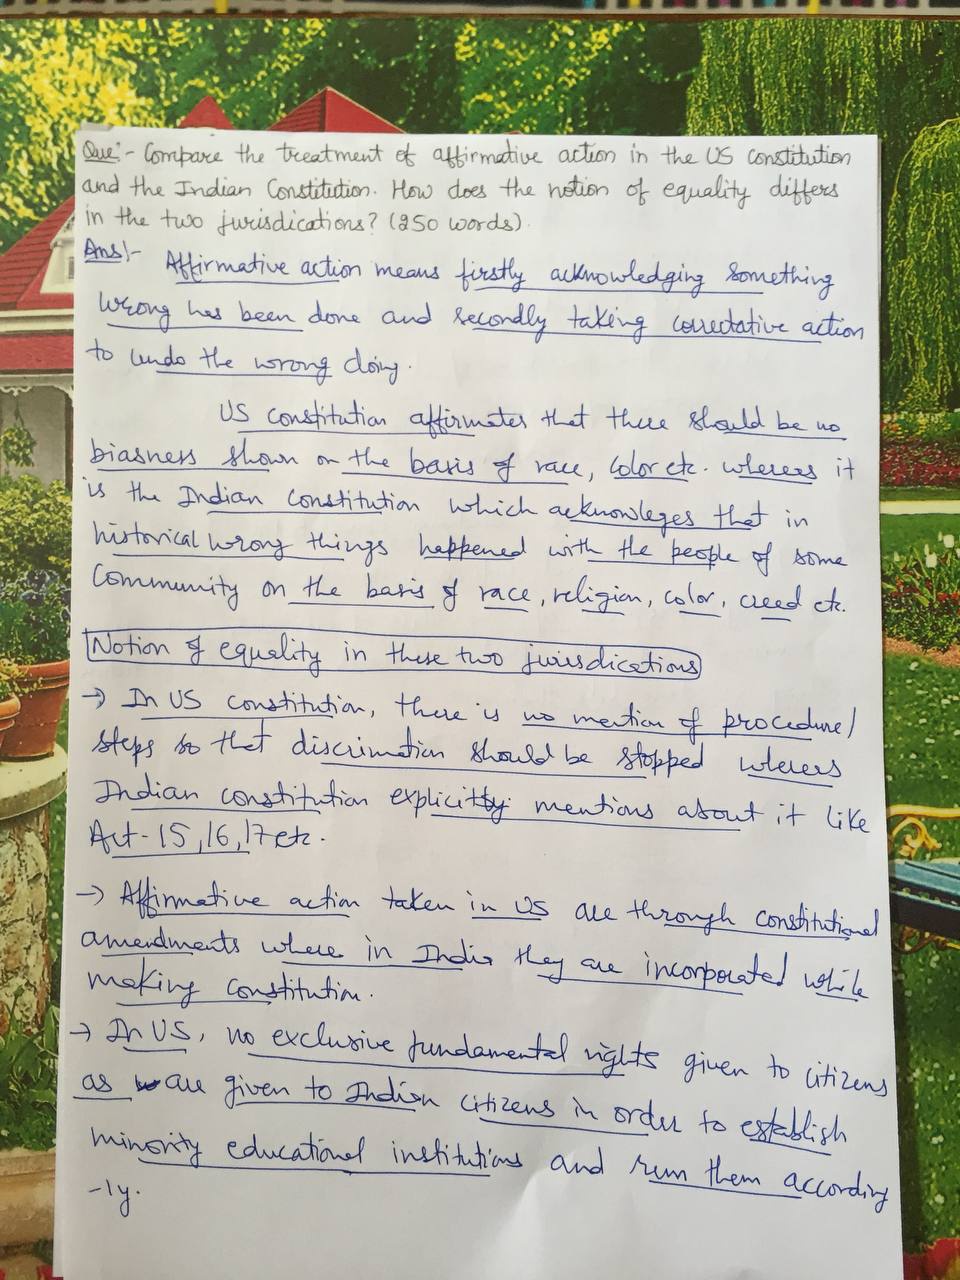 Que:- Compare the treatment of affirmative action in the US constitution
and the Indian Constitution. How does the notion of equality differs
in the two jurisdications? (250 words).
Ans:- Affirmative action means firstly acknowledging something
wrong has been done and secondly taking correctative action
to undo the wrong doing.
US constitution affirmates that there should be no
biasness shown on the basis of race, color etc. wheres it
is the Indian constitution which acknowleges that in
historical wrong things happened with the people of some
Community on the basis of race, religion, color, creed etc.
Notion of equality in these two jurisdications
→ In US constitution, there is no mention of procedure/
steps so that discrimation should be stopped wheres
Indian constitution explicitly mentions about it like
Art-15,16,17 etc.
→ Affirmative action taken in US are through constitutional
amendments where in India they are incorporated while
making constitution.
→ In US, no exclusive fundamental rights given to citizens
as are given to Indian citizens in order to establish
minority educational institutions and run them according
-ly.